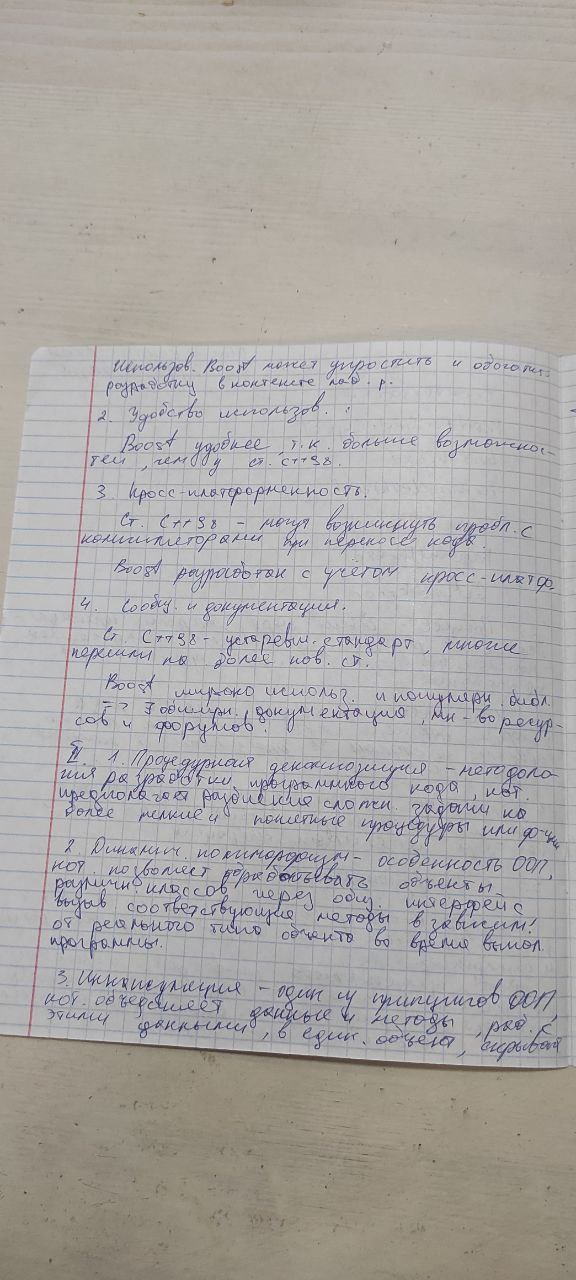 Использов. Boost может упростить и обогатить
разработку в контексте лаб. р.
2. Удобство использов. :
Boost удобнее, т.к. больше возможнос-
тей, чем у ст. C++98.
3. Кросс-платформенность.
Ст. C++98 - могут возникнуть пробл. с
компиляторами при переносе кода.
Boost разработан с учётом кросс-платф.
4. Сообщ. и документация.
Ст. C++98 - устаревш. стандарт, многие
перешли на более нов. ст.
Boost широко использ. и популярн. библ.
=> ∃ обширн. документация, мн-во ресур-
сов и форумов.
II. 1. Процедурная декомпозиция - методоло-
гия разработки программного кода, кот.
предполагает разбиение сложн. задачи на
более мелкие и понятные процедуры или ф-ции
2. Динамич. полиморфизм - особенность ООП,
кот. позволяет обрабатывать объекты
различн. классов через общ. интерфейс
вызыв соответствующие методы в зависим.
от реального типа объекта во время выпол.
программы.
3. Инкапсуляция - один из принципов ООП,
кот. объединяет данные и методы, раб. с
этими данными, в един. объект, скрывая